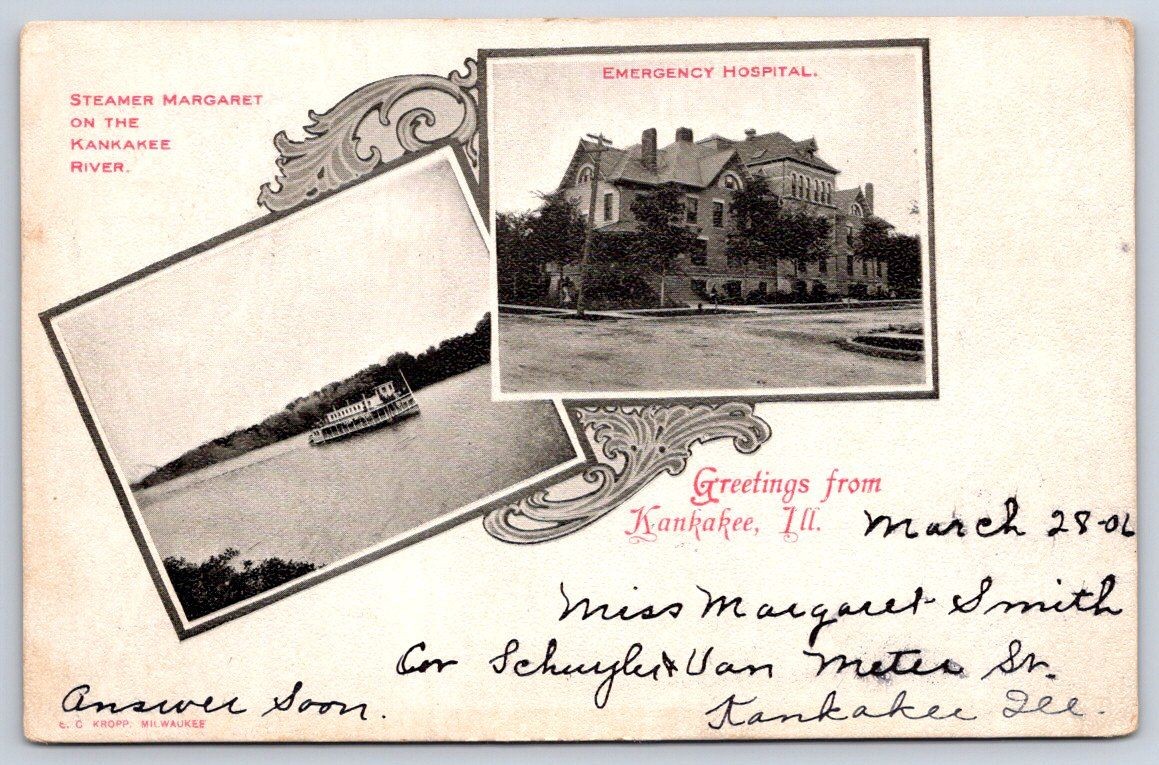 STEAMER MARGARET
ON THE
KANKAKEE
RIVER.
EMERGENCY HOSPITAL.
Greetings from
Kankakee, Ill.
March 28-06
Miss Margaret Smith
Cor Schuyler & Van Meter St.
Kankakee Ill.
Answer Soon.
E. C. KROPP. MILWAUKEE